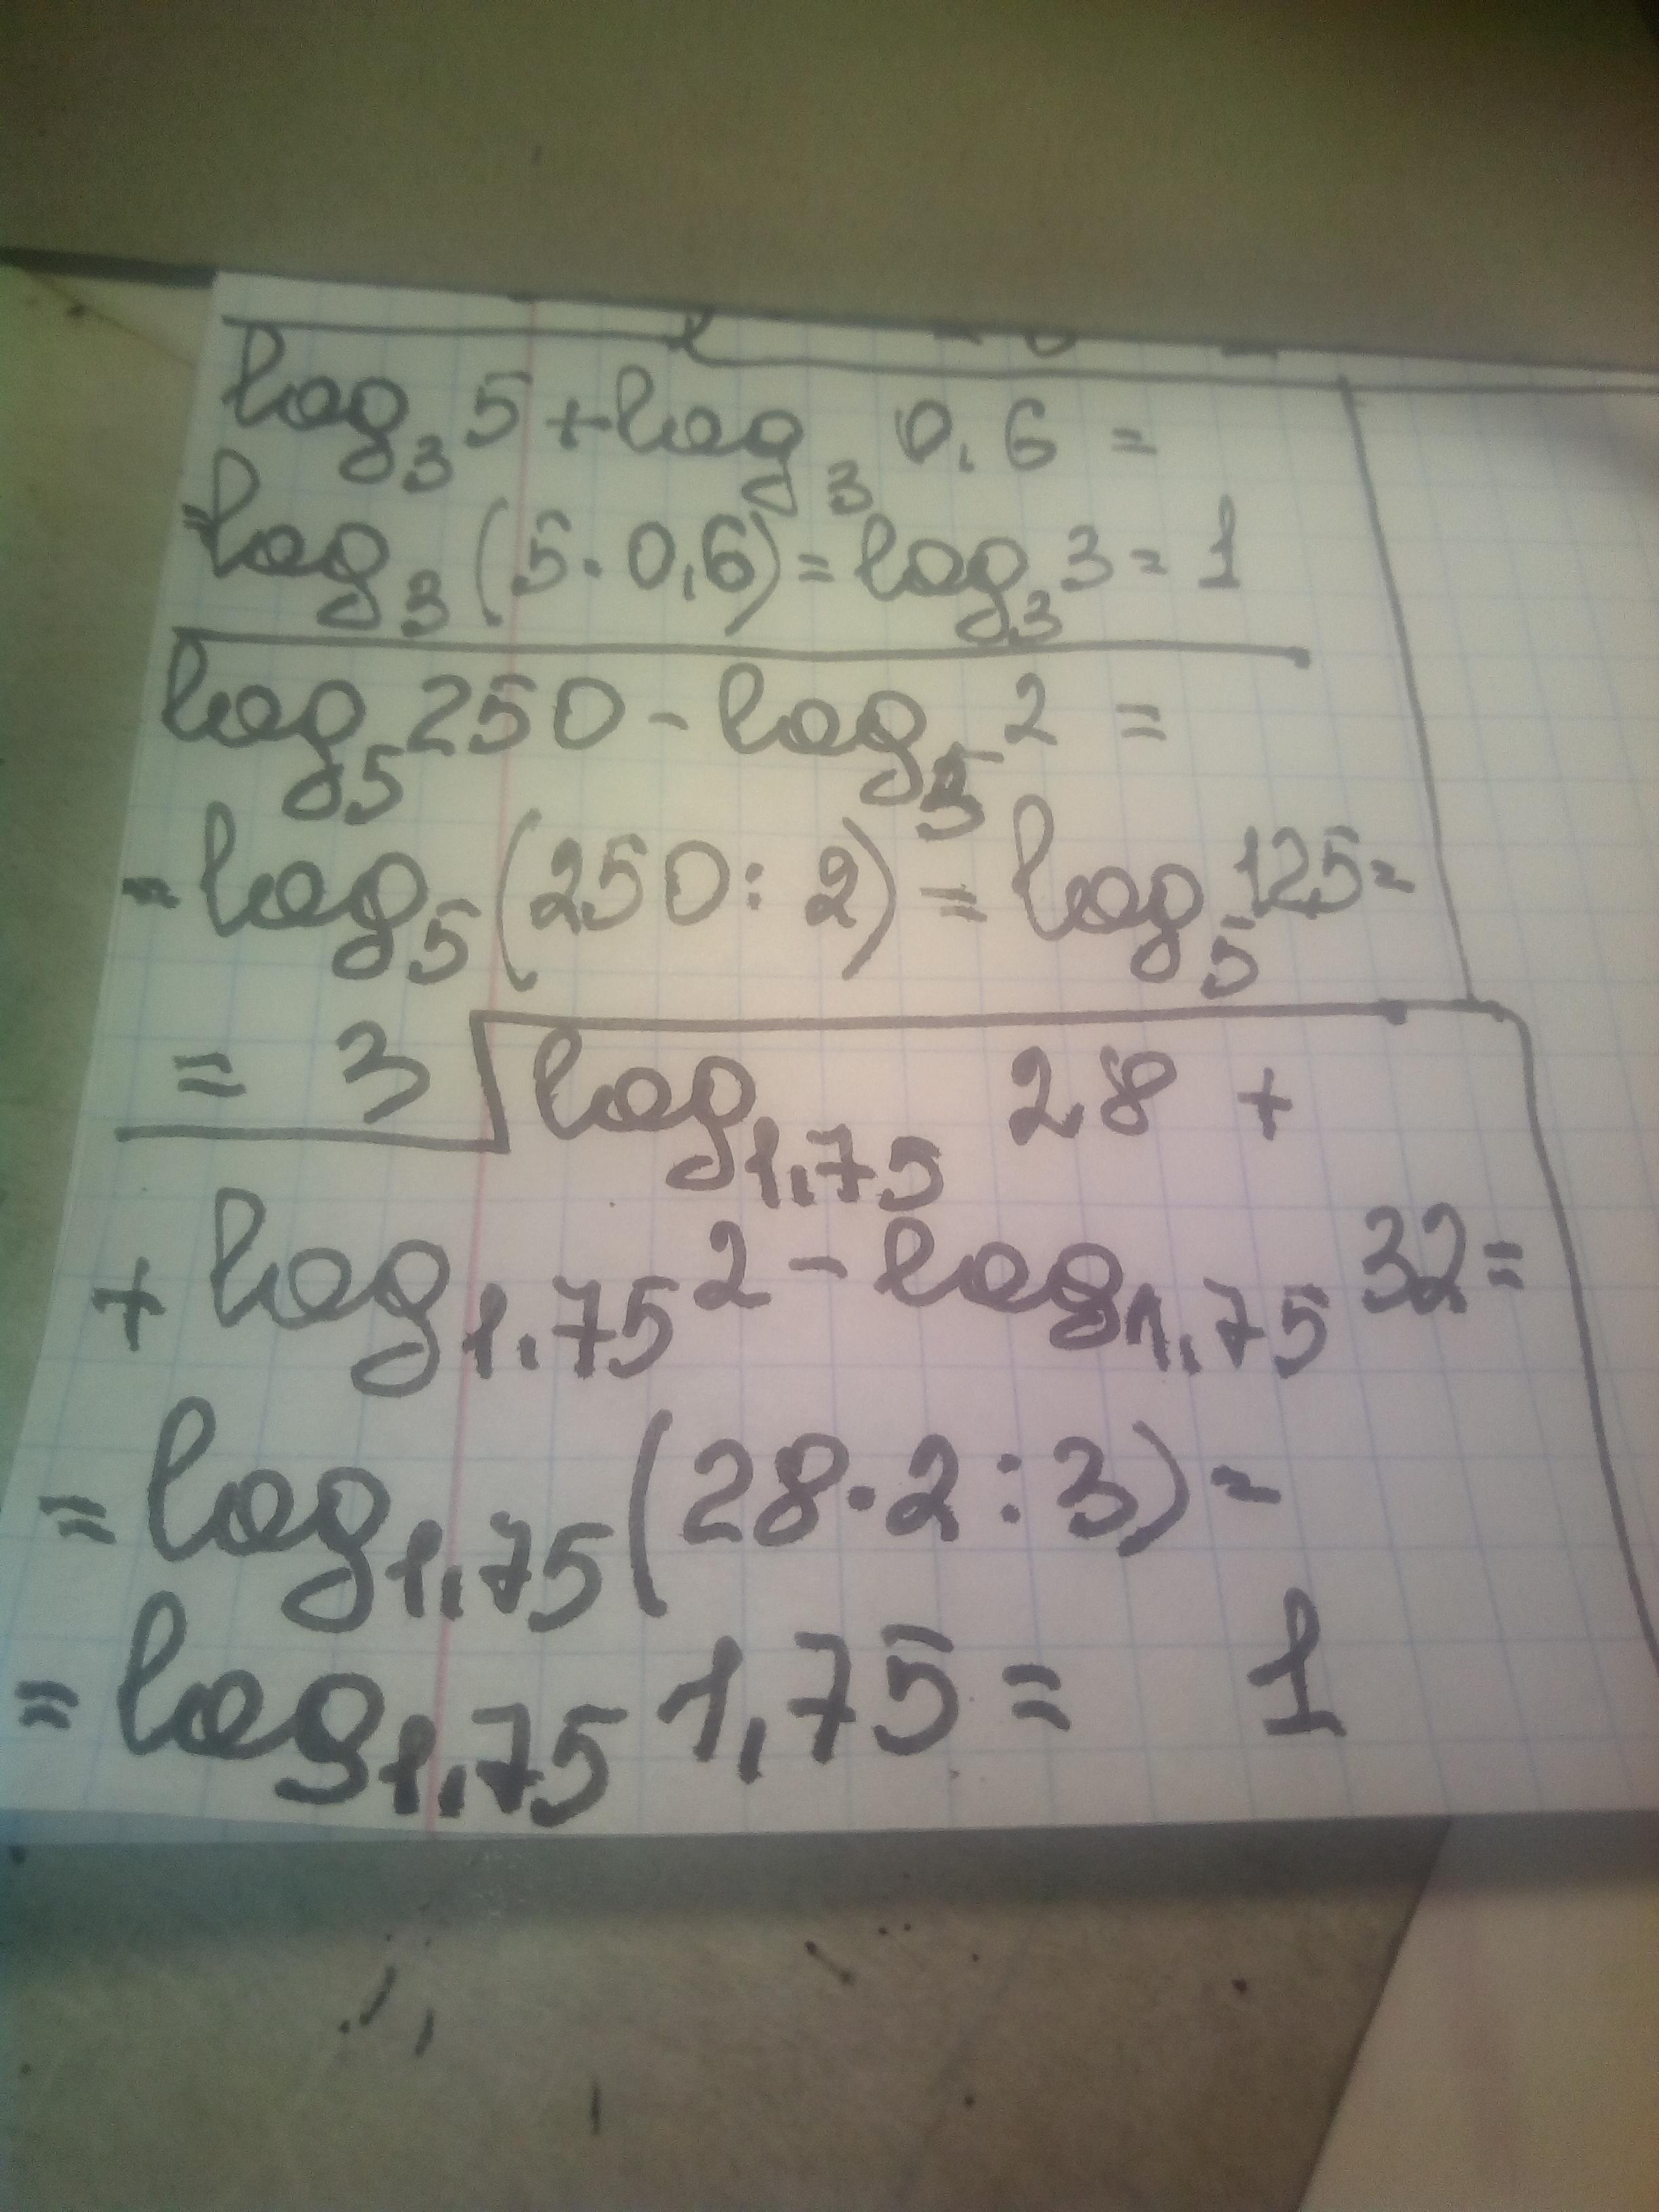 log₃5+log₃ 0,6 =
=log₃(5·0,6)=log₃3=1
log₅250-log₅2 =
=log₅(250:2)=log₅125=
= 3 log₁,₇₅ 28 +
+ log₁,₇₅2-log₁,₇₅32=
=log₁,₇₅(28·2:3)=
=log₁,₇₅1,75= 1